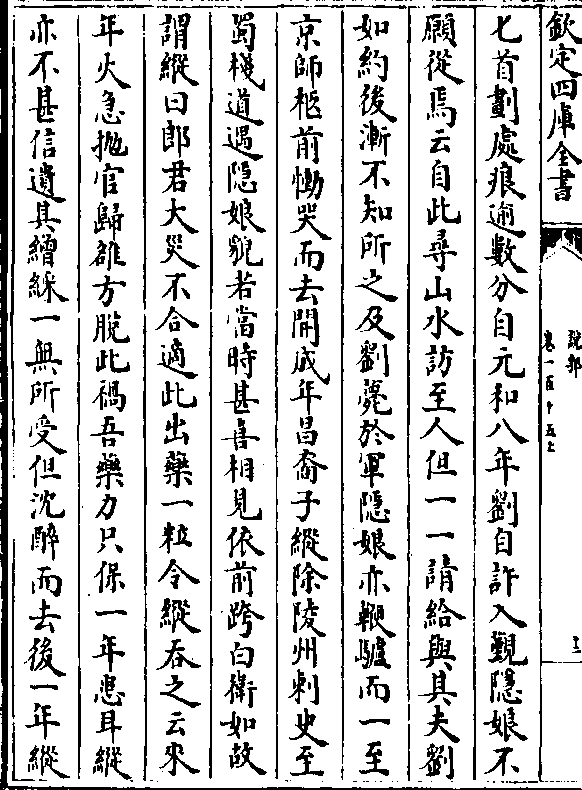 欽定四庫全書
說郛
卷一百十五上
十三
匕首劃處痕逾數分自元和八年劉自許入覲隱娘不
願從焉云自此尋山水訪至人但一一請給與其夫劉
如約後漸不知所之及劉薨於軍隱娘亦鞭驢而一至
京師柩前慟哭而去開成年昌裔子縱除陵州刺史至
蜀棧道遇隱娘貌若當時甚喜相見依前跨白衛如故
謂縱曰郎君大災不合適此出藥一粒令縱吞之云來
年火急拋官歸雒方脫此禍吾藥力只保一年患耳縱
亦不甚信遺其繒綵一無所受但沈醉而去後一年縱